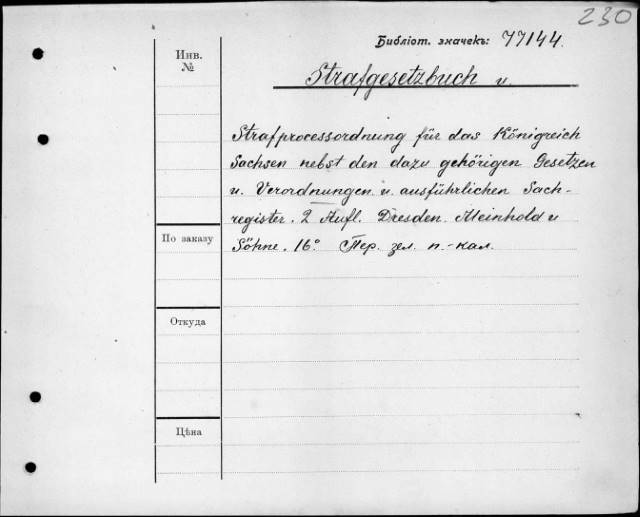 230
Библіот. значекъ: 77144.
Инв. №
Strafgesetzbuch u.
Strafprocessordnung für das Königreich
Sachsen nebst den dazu gehörigen Gesetzen
u. Verordnungen u. ausführlichen Sach-
register. 2 Aufl. Dresden. Meinhold u
Söhne. 16° Пер. зел. п.-кал.
По заказу
Откуда
Цѣна